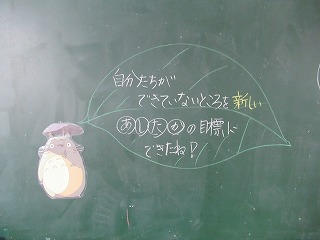 自分たちが
できていないところを新しい
あしたかの目標に
できたね!